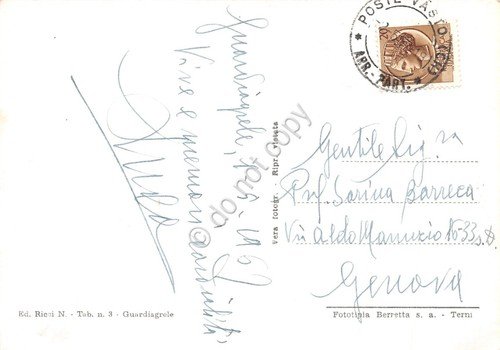 Guardiagrele,
Vive e memori cordialità
Gentile Sig.ra
Prof. Sarina Barreca
Via Aldo Manuzio 15-33 s. D.
Genova
POSTE VASTO
ARR. - PART.
20
Vera fotogr. - Ripr. vietata
Ed. Ricci N. - Tab. n. 3 - Guardiagrele
Fototipia Berretta s. a. - Terni
do not copy